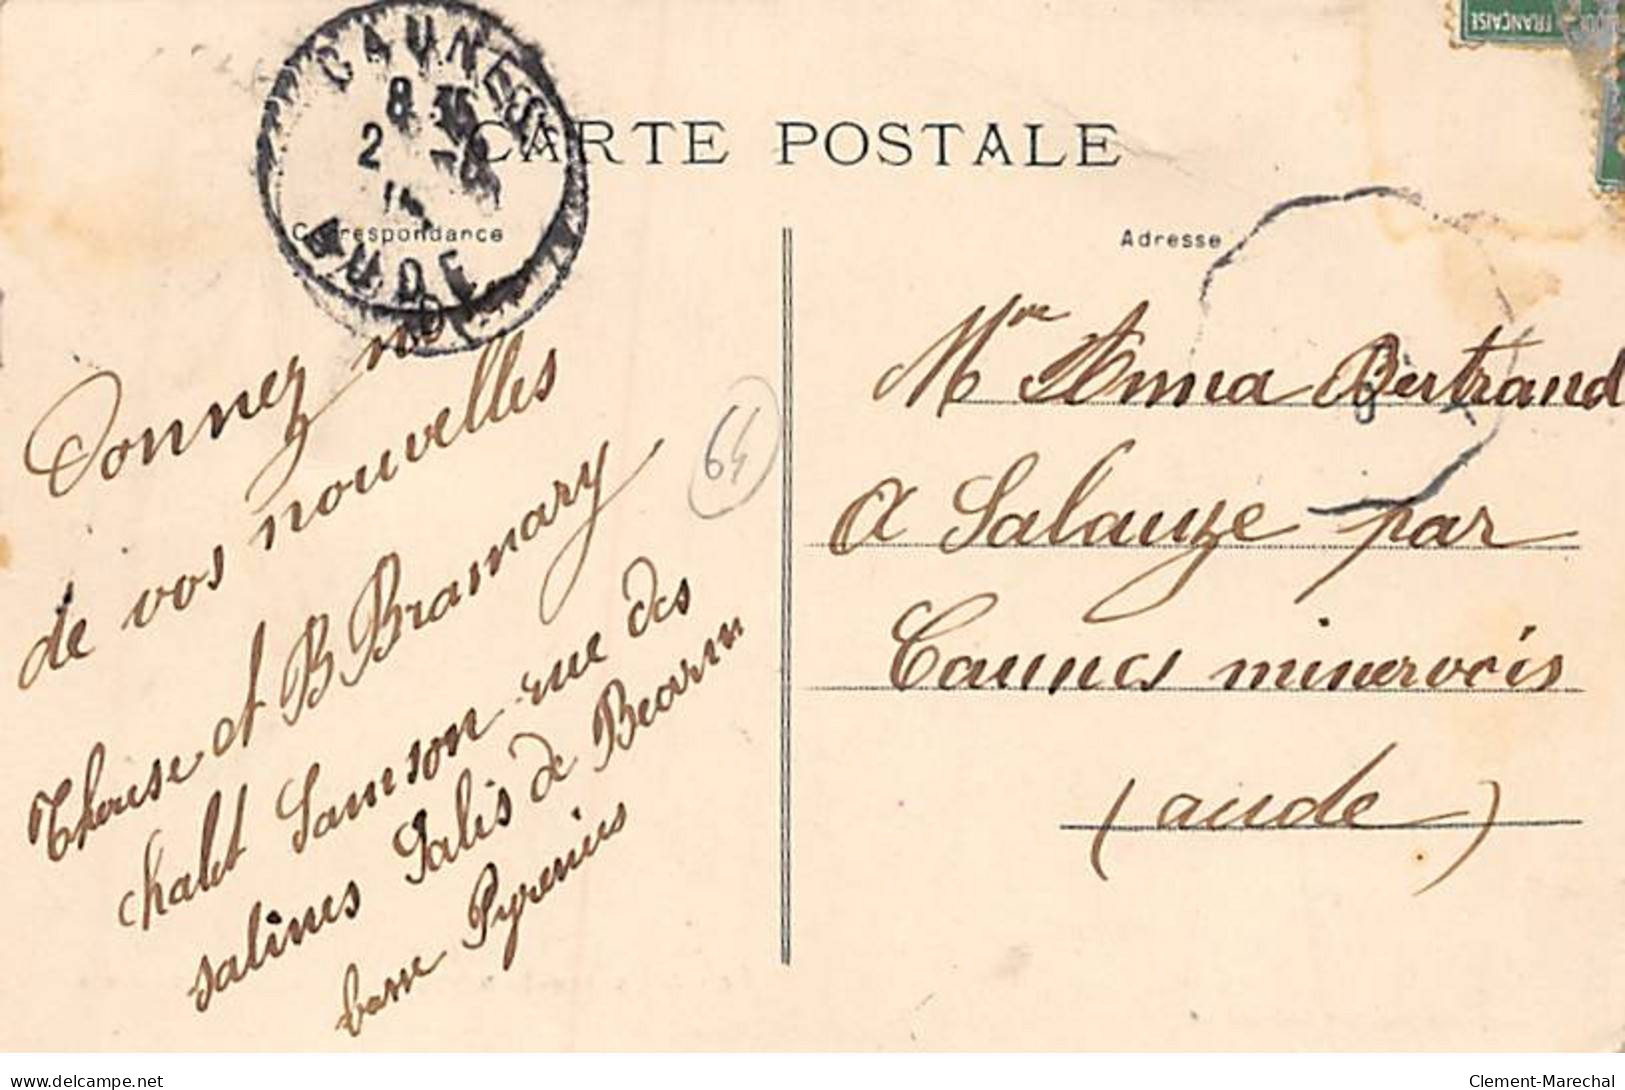 CAUNES
8 35
2
AUDE
CARTE POSTALE
Correspondance
Adresse
FRANÇAISE
Donnez nous
de vos nouvelles
Therese et B Bramary
chalet Samson rue des
salines Salis de Bearn
basse Pyrenies
64
Mme Anna Bertrand
a Salauze par
Caunes minervois
(aude)
www.delcampe.net
Clement-Marechal